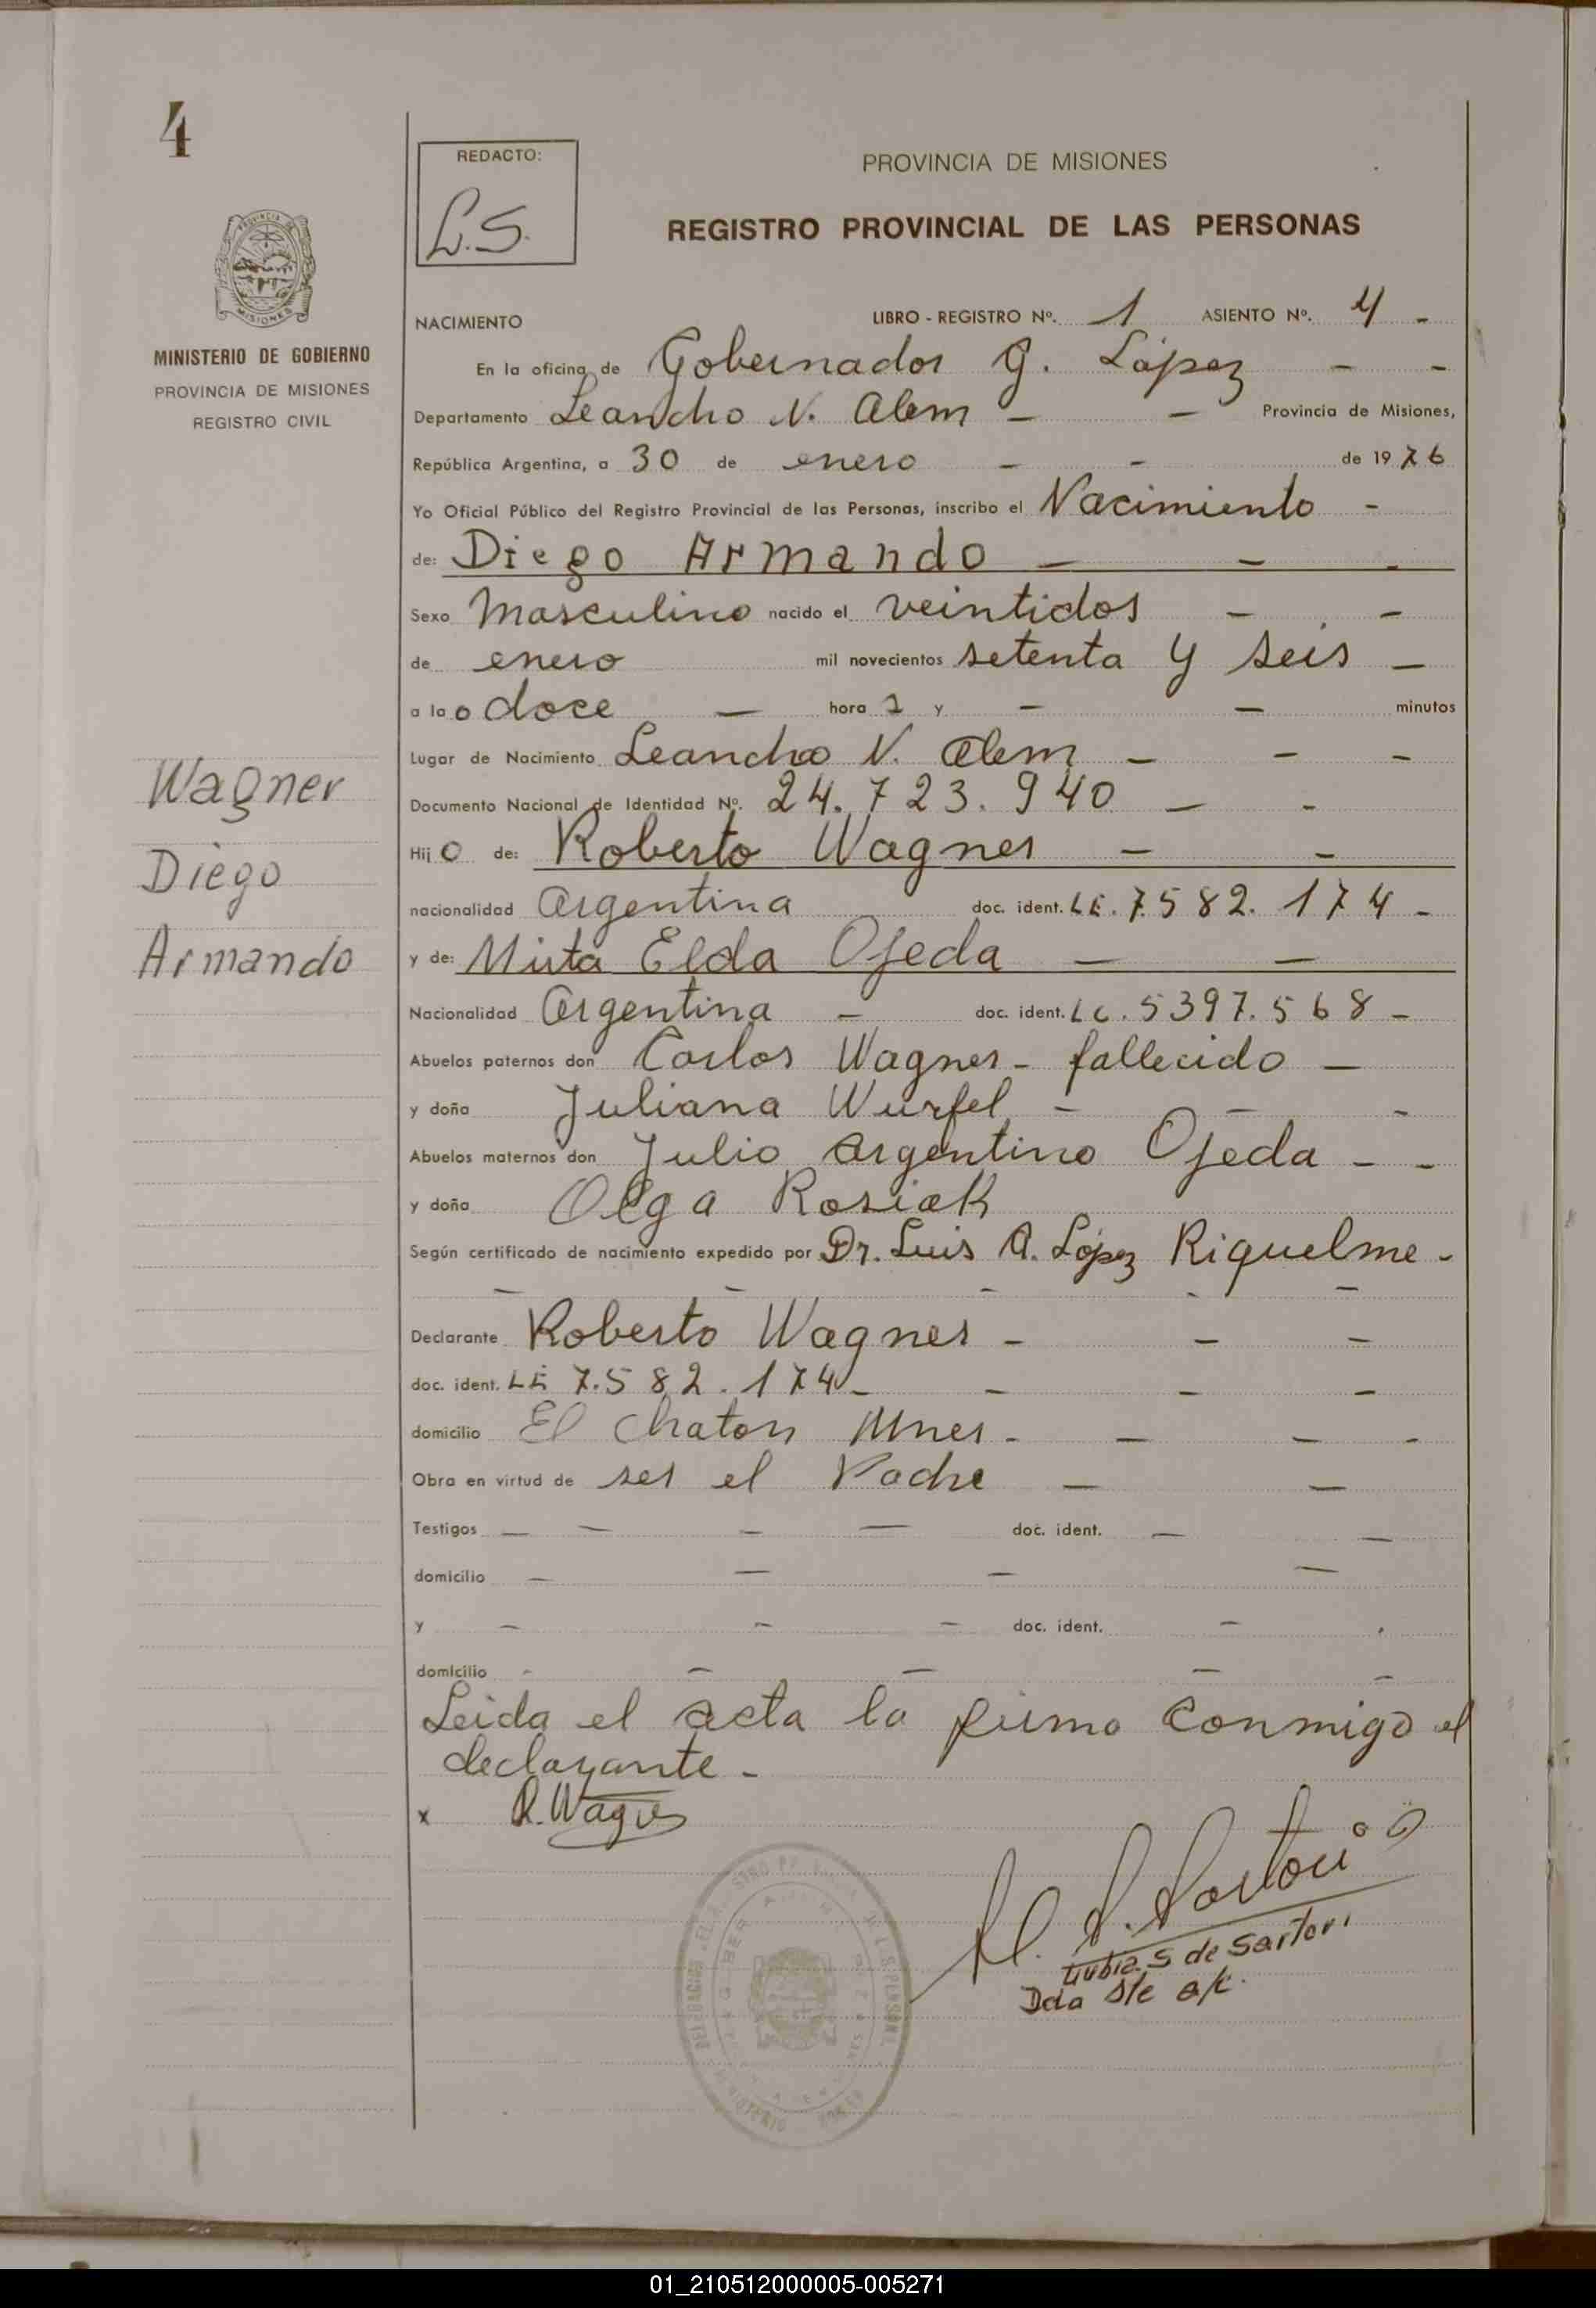 4
REDACTO:
L.S.
PROVINCIA DE MISIONES
REGISTRO PROVINCIAL DE LAS PERSONAS
MINISTERIO DE GOBIERNO
PROVINCIA DE MISIONES
REGISTRO CIVIL
NACIMIENTO LIBRO - REGISTRO Nº. 1 ASIENTO Nº. 4 -
En la oficina de Gobernador G. López - -
Departamento Leandro N. Alem - - Provincia de Misiones,
República Argentina, a 30 de enero - - de 1976
Yo Oficial Público del Registro Provincial de las Personas, inscribo el Nacimiento -
de: Diego Armando - - -
Sexo Masculino nacido el veintidos - -
de enero mil novecientos setenta y seis -
a las doce - horas y - - minutos
Lugar de Nacimiento Leandro N. Alem - - -
Documento Nacional de Identidad Nº. 24.723.940 - -
Hijo de: Roberto Wagner - -
nacionalidad Argentina doc. ident. LE. 7.582.174 -
y de: Mirta Elda Ojeda - -
Nacionalidad Argentina - doc. ident. LC. 5397.568 -
Abuelos paternos don Carlos Wagner - fallecido -
y doña Juliana Wurfel - - -
Abuelos maternos don Julio Argentino Ojeda - -
y doña Olga Rosiak
Según certificado de nacimiento expedido por Dr. Luis A. López Riquelme -
- - - - -
Declarante Roberto Wagner - - -
doc. ident. LE 7.582.174 - - - -
domicilio El Chaton Mnes - - - -
Obra en virtud de ser el Padre - -
Testigos - - - - doc. ident. - -
domicilio - - - -
y - - - doc. ident. -
domicilio - - - - -
Leida el acta la firma conmigo el
declarante -
x R. Wagner
Wagner
Diego
Armando
S de Sartori
Dda
01_210512000005-005271